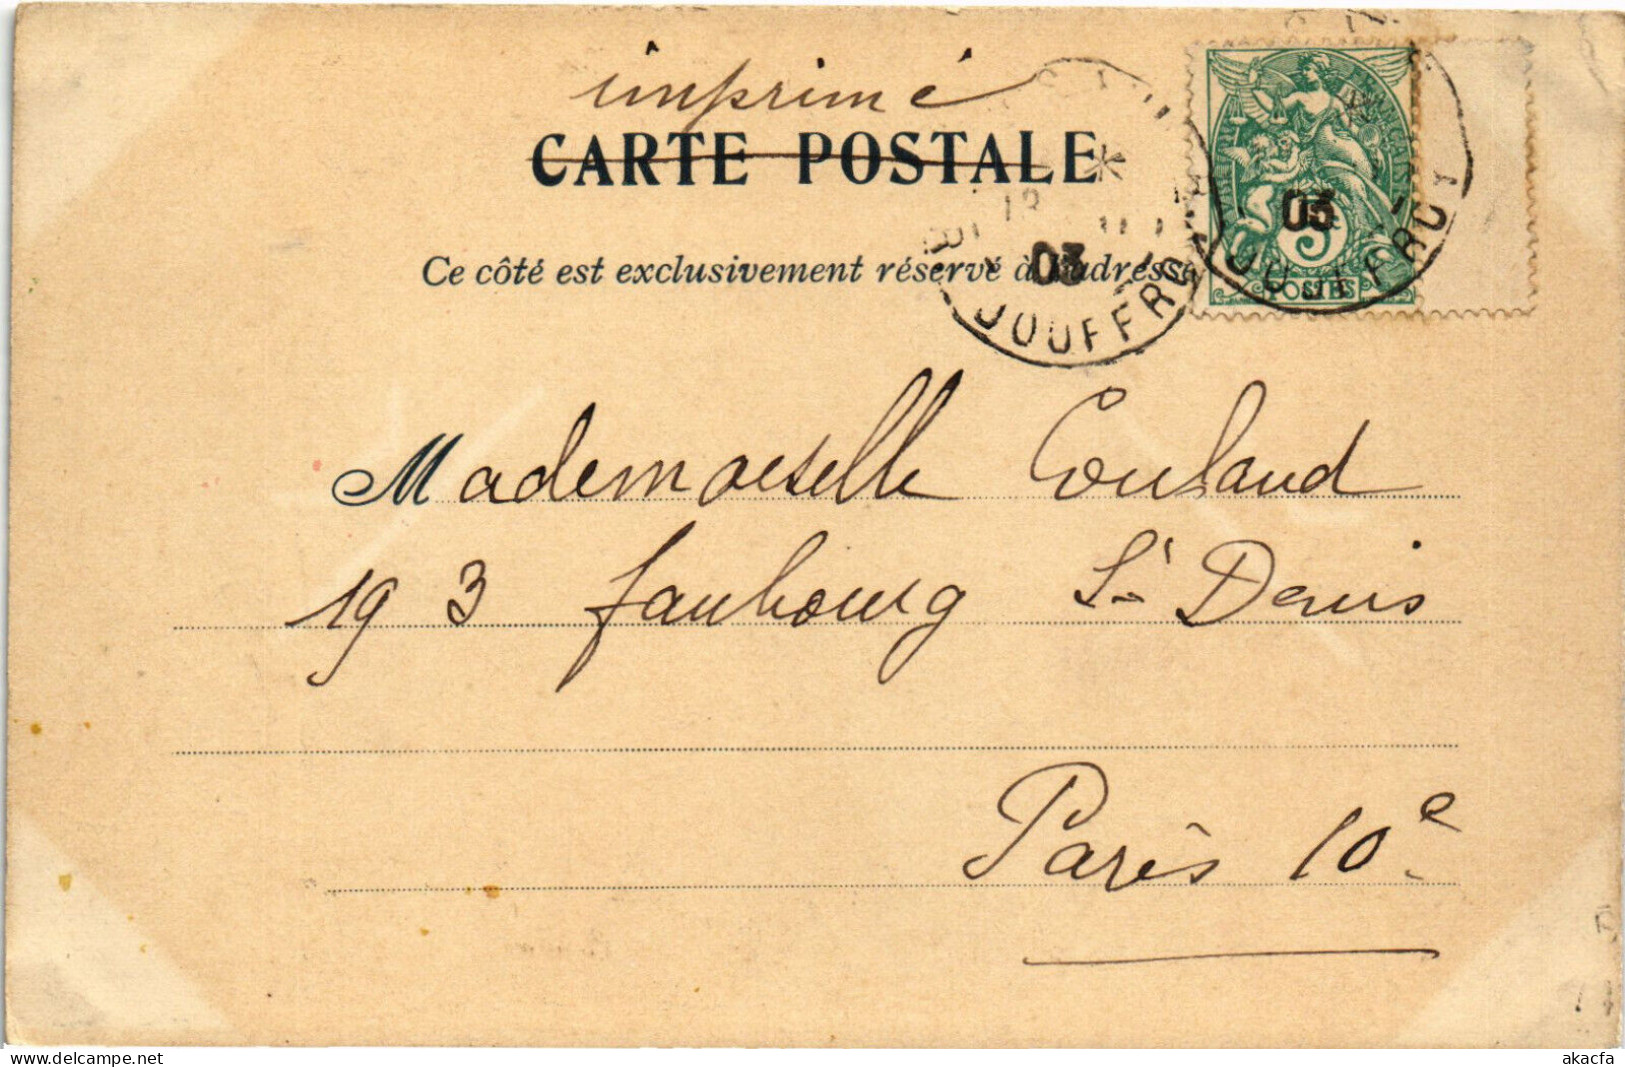 imprimé
CARTE POSTALE
Ce côté est exclusivement réservé à l'adresse
03
JOUFFROY
03
JOUFFROY
5
POSTES
Mademoiselle Couland
193 faubourg St Denis
Paris 10e
delcampe.net
akacfa